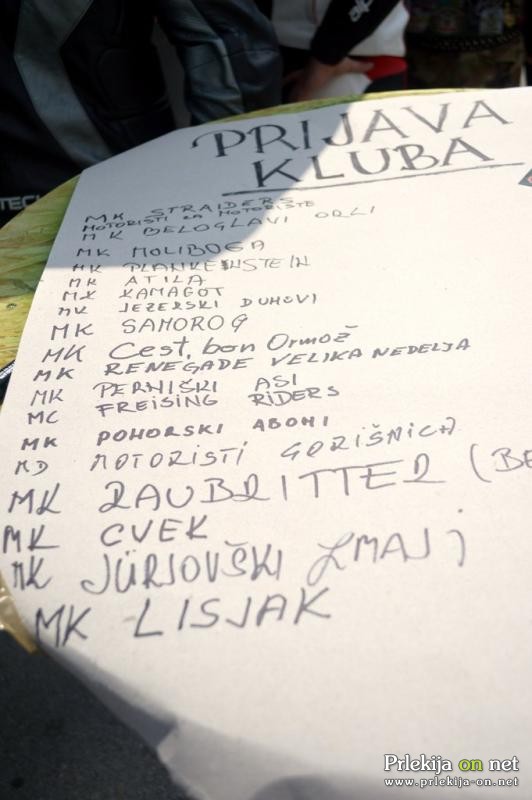 TECH
PRIJAVA
KLUBA
MK STRAIDERS
MOTORISTI ZA MOTORISTE
MK BELOGLAVI ORLI
MK MOLIBOGA
MK PLANKEINSTEIN
MK ATILA
MK KAMAGOT
MK JEZERSKI DUHOVI
MK SAMOROG
MK Cest. bon Ormož
MK RENEGADE VELIKA NEDELJA
MK PERNIŠKI ASI
MC FREISING RIDERS
MK POHORSKI ABOHI
MD MOTORISTI GORIŠNICA
MK RAUBRITTER (BE
MK CVEK
MK JÜRJOVŠKI ZMAJI
MK LISJAK
Prlekija on net
www.prlekija-on.net